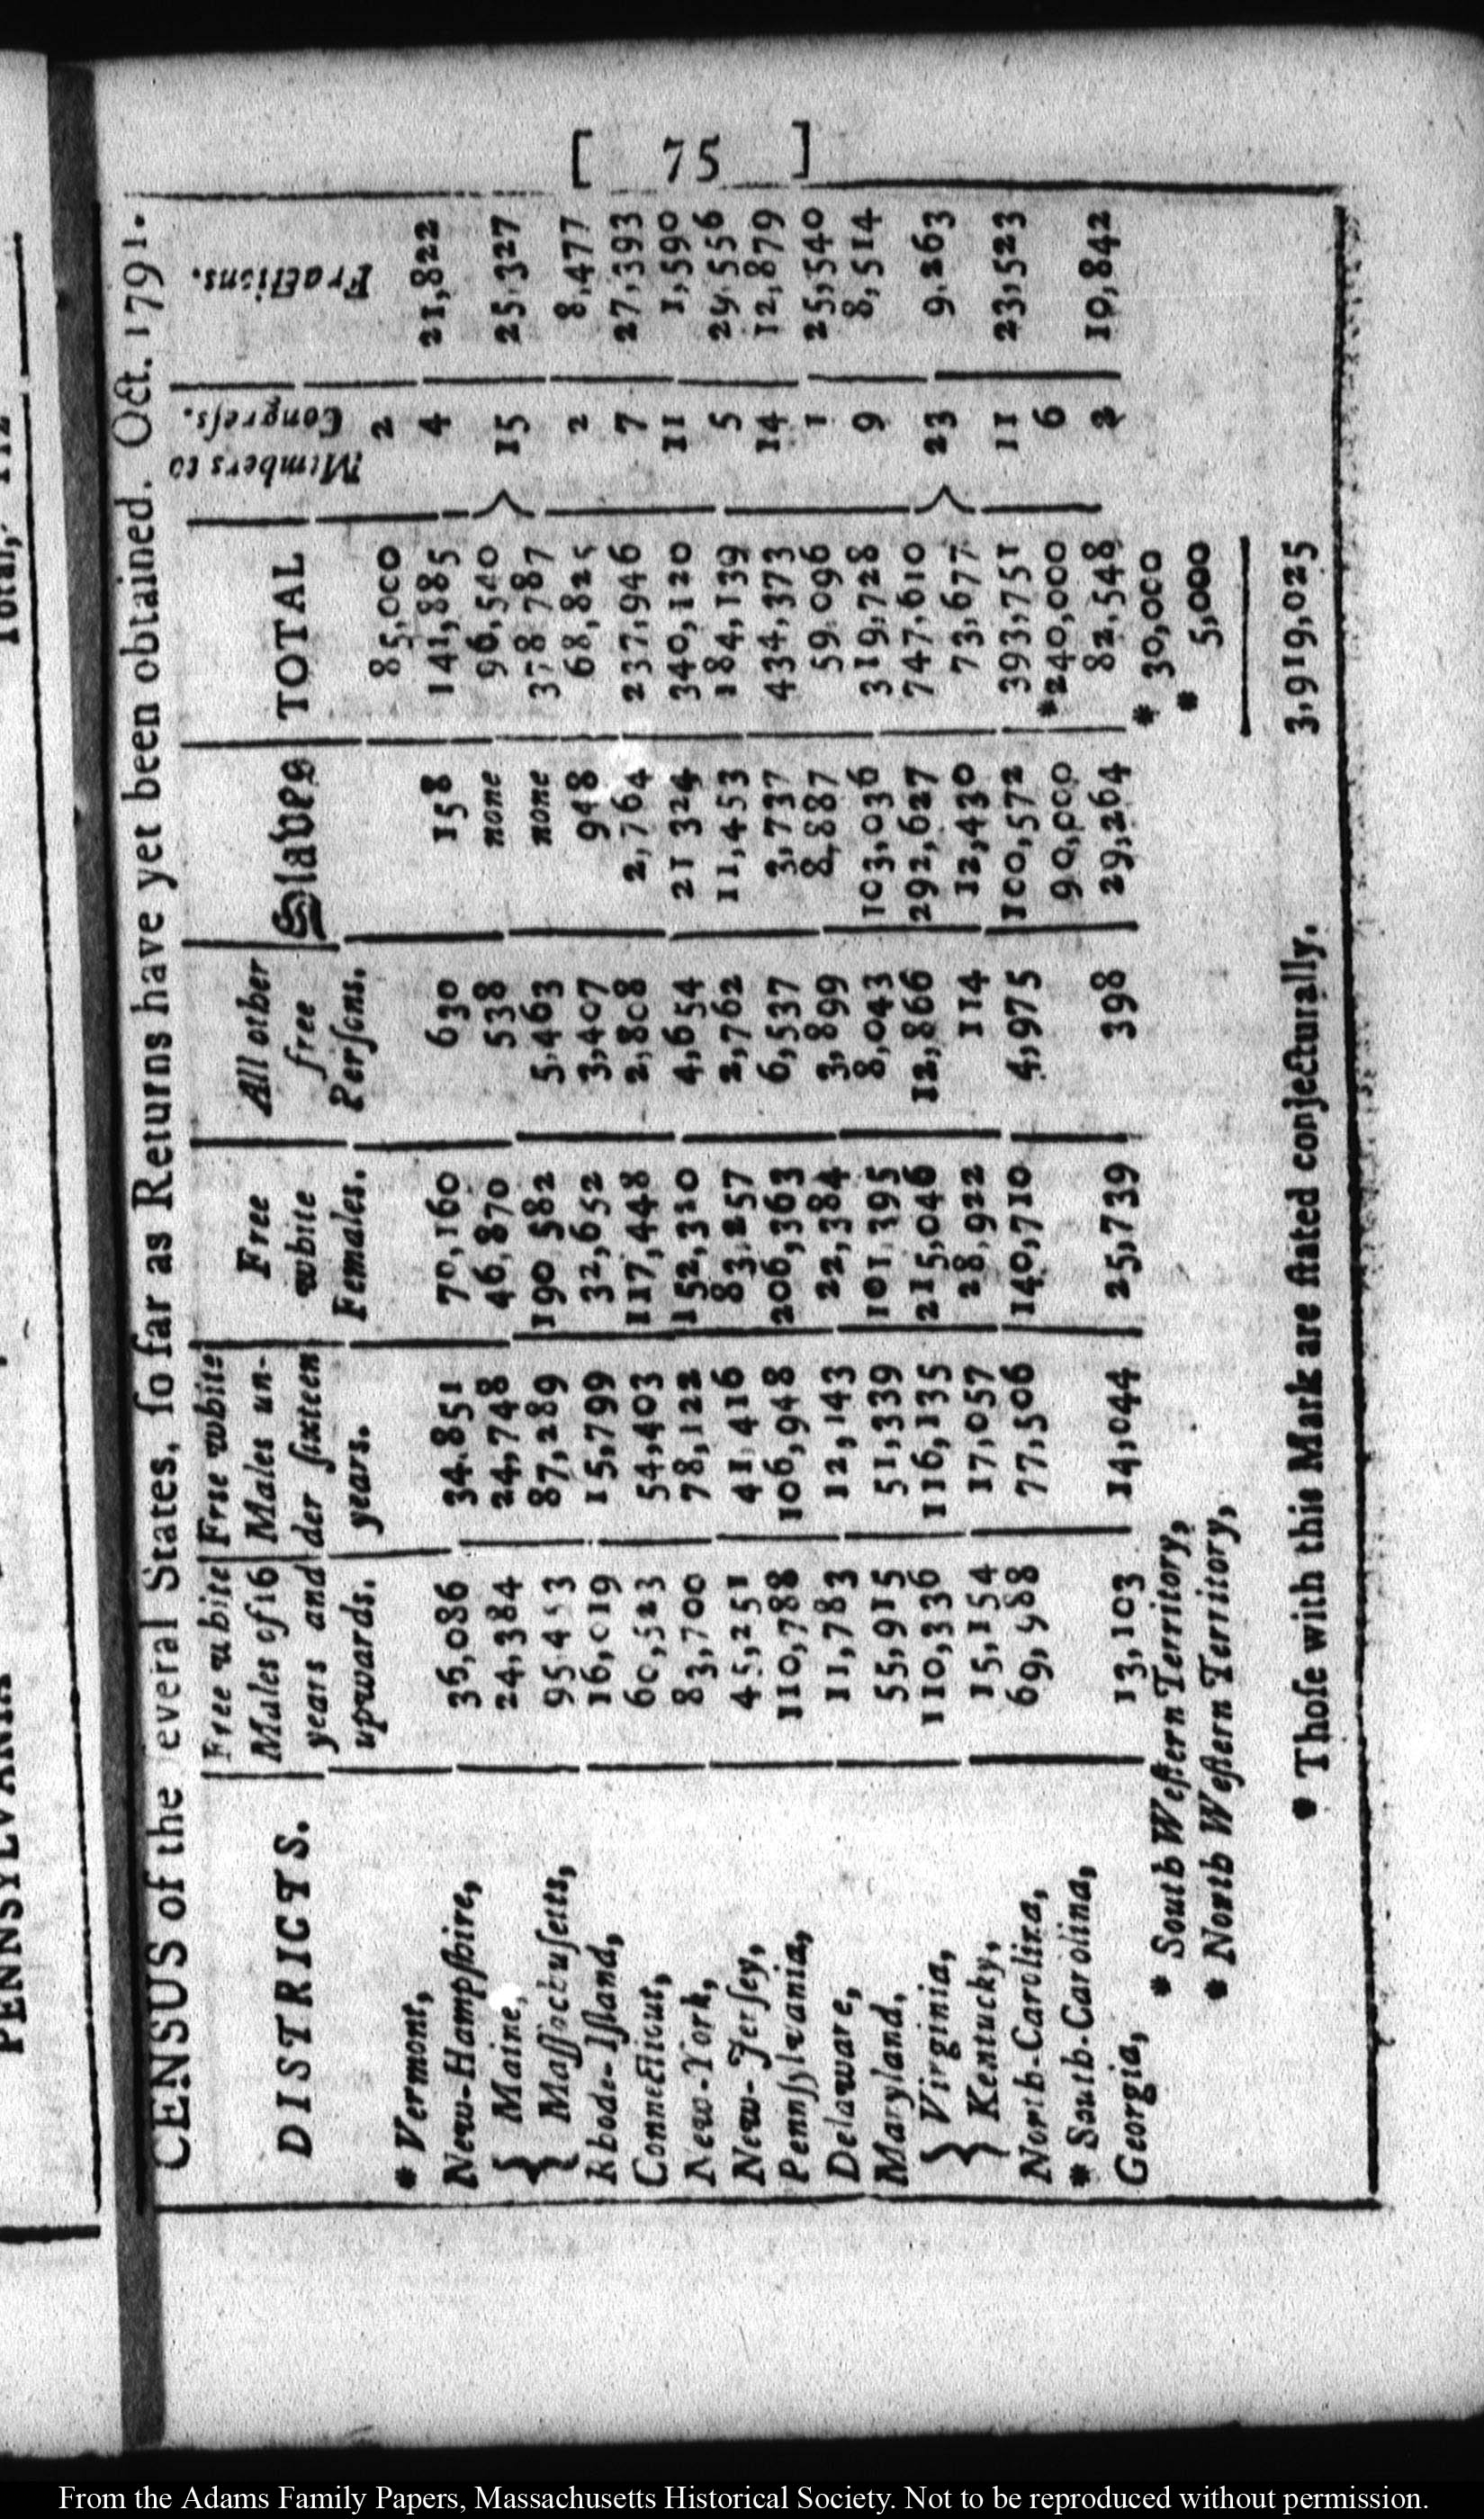 [ 75 ]
CENSUS of the several States, ſo far as Returns have yet been obtained. Oct. 1791.
DISTRICTS. | Free white Males of 16 years and upwards. | Free white Males under ſixteen years. | Free white Females. | All other free Perſons. | Slaves | TOTAL | Members to Congreſs. | Fractions.
* Vermont, 85,000 2
New-Hampſhire, 36,086 34.851 70,160 630 158 141,885 4 21,822
{ Maine, 24,384 24,748 46,870 538 none 96,540 } 15 25.327
{ Maſſachuſetts, 95 453 87,289 190 582 5,463 none 378 787
Rhode-Iſland, 16,019 15,799 32,652 3,407 948 68,825 2 8,477
Connecticut, 60,523 54,403 117,448 2,808 2,764 237,946 7 27,393
New-York, 83,700 78,122 152,320 4,654 21 324 340,120 11 1,590
New-Jerſey, 45,251 41,416 83,257 2,762 11,453 184,139 5 29.556
Pennſylvania, 110,788 106,948 206,363 6,537 3,737 434,373 14 12,879
Delaware, 11,783 12,143 22,384 3,899 8,887 59.096 1 25,540
Maryland, 55,915 51,339 101 395 8,043 103,036 319,728 9 8,514
{ Virginia, 110,336 116,135 215,046 12,866 292,627 747,610 } 23 9.263
{ Kentucky, 15,154 17,057 28,922 114 12,430 73,677
North-Carolina, 69,988 77,506 140,710 4,975 100,572 393,751 11 23,523
* South-Carolina, 90,000 *240,000 6
Georgia, 13,103 14,044 25,739 398 29,264 82,548 2 10,842
* South Weſtern Territory, * 30,000
* North Weſtern Territory, * 5,000
3,919,025
* Thoſe with this Mark are ſtated conjecturally.
PENNSYLVANIA
Total,
From the Adams Family Papers, Massachusetts Historical Society. Not to be reproduced without permission.